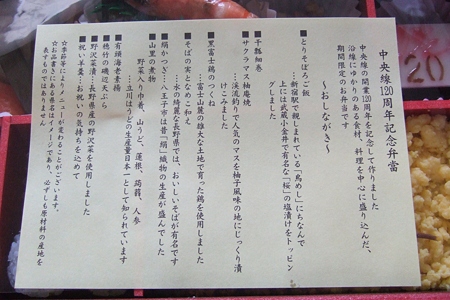 中央線120周年記念弁當
中央線の開業120周年を記念して作りました
沿線にゆかりのある食材、料理を中心に盛り込んだ、
期間限定のお弁当です
～おしながき～
■とりそぼろご飯
…新宿駅で親しまれている「鳥めし」にちなんで
上には武蔵小金井で有名な「桜」の塩漬けをトッピン
グしました
■干瓢細巻
■サクラマス柚庵焼
…渓流釣りで人気のマスを柚子風味の地にじっくり漬
けこみました
■黒富士鶏のつくね
…富士山麓の雄大な土地で育った鶏を使用しました
■そばの実となめこ和え
…水の綺麗な長野県では、おいしいそばが有名です
■絹かつぎ…八王子市は昔「絹」織物の生産が盛んでした
■山里の煮物
野菜入りがんも、山うど、蓮根、蒟蒻、人参
…立川はうどの生産量日本一として知られています
■有頭海老素揚
■穂竹の磯辺天ぷら
■野沢菜漬…長野県産の野沢菜を使用しました
■祝い羊羹…お祝いの気持ちを込めて
☆季節等によりメニューが変わることがございます。
☆お品書きにある県名はイメージであり、必ずしも原材料の産地を
表すものではありません
120